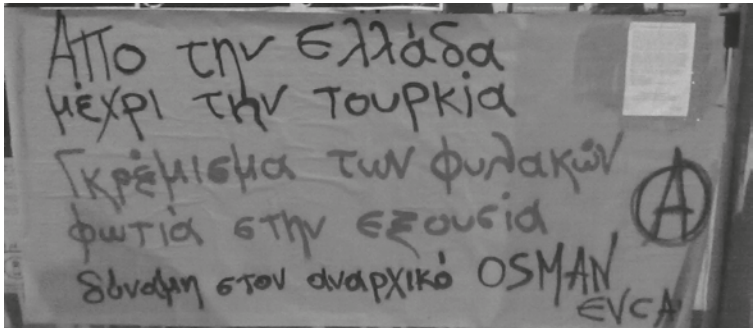 Απο την Ελλάδα
μέχρι την τουρκία
Γκρέμισμα των φυλακών
φωτιά στην εξουσία
δύναμη στον αναρχικό OSMAN
EVCA
A